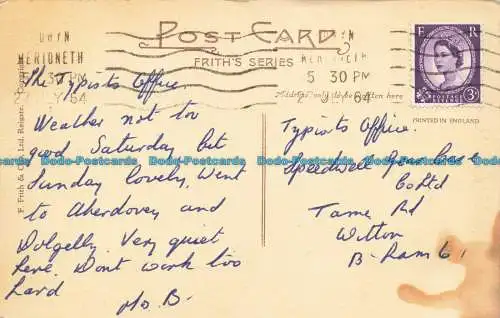 POST CARD
FRITH'S SERIES
MERIONETH
5 30 PM
64
MERIONETH
5 30 PM
64
E R
POSTAGE REVENUE
3D
Address only to be written here
PRINTED IN ENGLAND
F. Frith & Co. Ltd., Reigate.
The Typists Office.
Weather not too
good Saturday but
Sunday lovely, Went
to Aberdovey and
Dolgelly. Very quiet
here. Dont work too
hard
Mo. B.
Typists Office.
Speedwell Gear Case
Co Ltd
Tame Rd
Witton
B-Ham 6
Dodo-Postcards Dodo-Postcards Dodo-Postcards Dodo-Postcards Dodo-Postcards